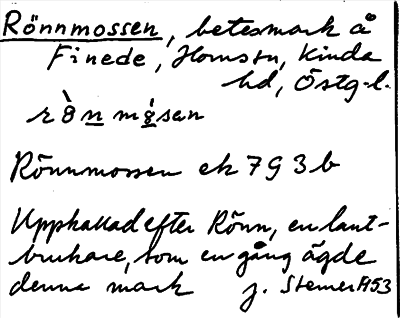 Rönnmossen, betesmark å
Finede, Hornstn, Kinda
hd, Östg-l.
Rönnmossen ek 793b
Upphallad efter Rönn, en lant-
brukare, som en gång ägde
denna mark J. Stemer H53